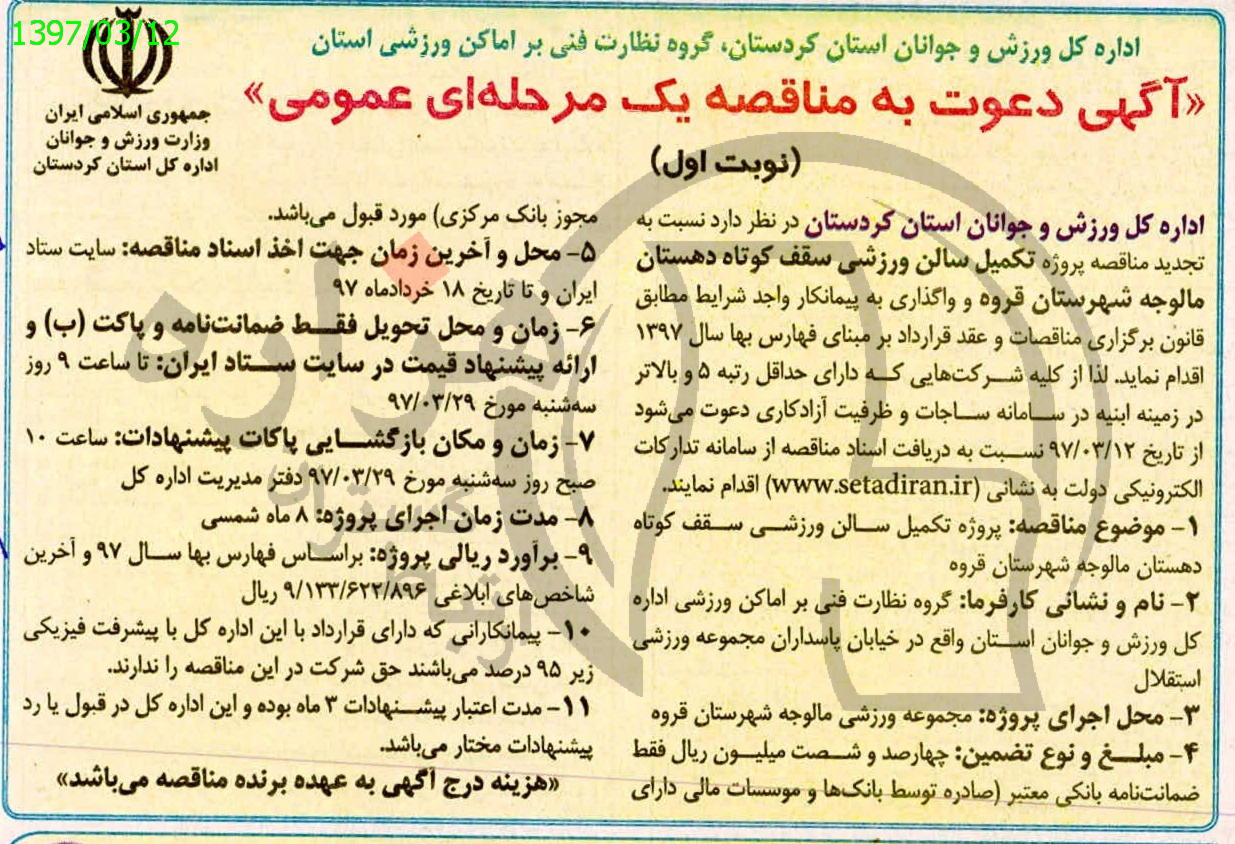 1397/03/12
جمهوری اسلامی ایران
وزارت ورزش و جوانان
اداره کل استان کردستان
اداره کل ورزش و جوانان استان کردستان، گروه نظارت فنی بر اماکن ورزشی استان
«آگهی دعوت به مناقصه یک مرحله‌ای عمومی»
(نوبت اول)
اداره کل ورزش و جوانان استان کردستان در نظر دارد نسبت به
تجدید مناقصه پروژه تکمیل سالن ورزشی سقف کوتاه دهستان
مالوجه شهرستان قروه و واگذاری به پیمانکار واجد شرایط مطابق
قانون برگزاری مناقصات و عقد قرارداد بر مبنای فهارس بها سال ۱۳۹۷
اقدام نماید. لذا از کلیه شرکت‌هایی که دارای حداقل رتبه ۵ و بالاتر
در زمینه ابنیه در سامانه ساجات و ظرفیت آزادکاری دعوت می‌شود
از تاریخ ۹۷/۰۳/۱۲ نسبت به دریافت اسناد مناقصه از سامانه تدارکات
الکترونیکی دولت به نشانی (www.setadiran.ir) اقدام نمایند.
۱- موضوع مناقصه: پروژه تکمیل سالن ورزشی سقف کوتاه
دهستان مالوجه شهرستان قروه
۲- نام و نشانی کارفرما: گروه نظارت فنی بر اماکن ورزشی اداره
کل ورزش و جوانان استان واقع در خیابان پاسداران مجموعه ورزشی
استقلال
۳- محل اجرای پروژه: مجموعه ورزشی مالوجه شهرستان قروه
۴- مبلغ و نوع تضمین: چهارصد و شصت میلیون ریال فقط
ضمانت‌نامه بانکی معتبر (صادره توسط بانک‌ها و موسسات مالی دارای
مجوز بانک مرکزی) مورد قبول می‌باشد.
۵- محل و آخرین زمان جهت اخذ اسناد مناقصه: سایت ستاد
ایران و تا تاریخ ۱۸ خردادماه ۹۷
۶- زمان و محل تحویل فقط ضمانت‌نامه و پاکت (ب) و
ارائه پیشنهاد قیمت در سایت ستاد ایران: تا ساعت ۹ روز
سه‌شنبه مورخ ۹۷/۰۳/۲۹
۷- زمان و مکان بازگشایی پاکات پیشنهادات: ساعت ۱۰
صبح روز سه‌شنبه مورخ ۹۷/۰۳/۲۹ دفتر مدیریت اداره کل
۸- مدت زمان اجرای پروژه: ۸ ماه شمسی
۹- برآورد ریالی پروژه: براساس فهارس بها سال ۹۷ و آخرین
شاخص‌های ابلاغی ۹/۱۳۳/۶۲۲/۸۹۶ ریال
۱۰- پیمانکارانی که دارای قرارداد با این اداره کل با پیشرفت فیزیکی
زیر ۹۵ درصد می‌باشند حق شرکت در این مناقصه را ندارند.
۱۱- مدت اعتبار پیشنهادات ۳ ماه بوده و این اداره کل در قبول یا رد
پیشنهادات مختار می‌باشد.
«هزینه درج آگهی به عهده برنده مناقصه می‌باشد»